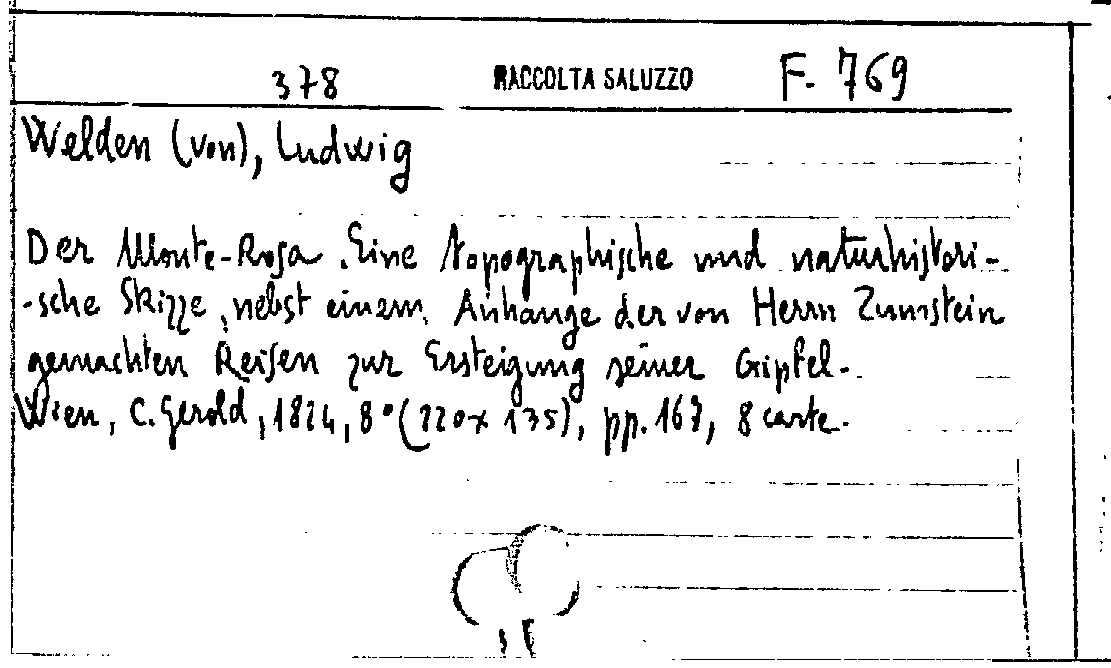 378 RACCOLTA SALUZZO F. 769
Welden (von), Ludwig
Der Monte-Rosa. Eine topographische und naturhistori-
-sche Skizze, nebst einem Anhange der von Herrn Zumstein
gemachten Reisen zur Ersteigung seiner Gipfel.
Wien, C. Gerold, 1824, 8° (220x135), pp. 167, 8 carte.